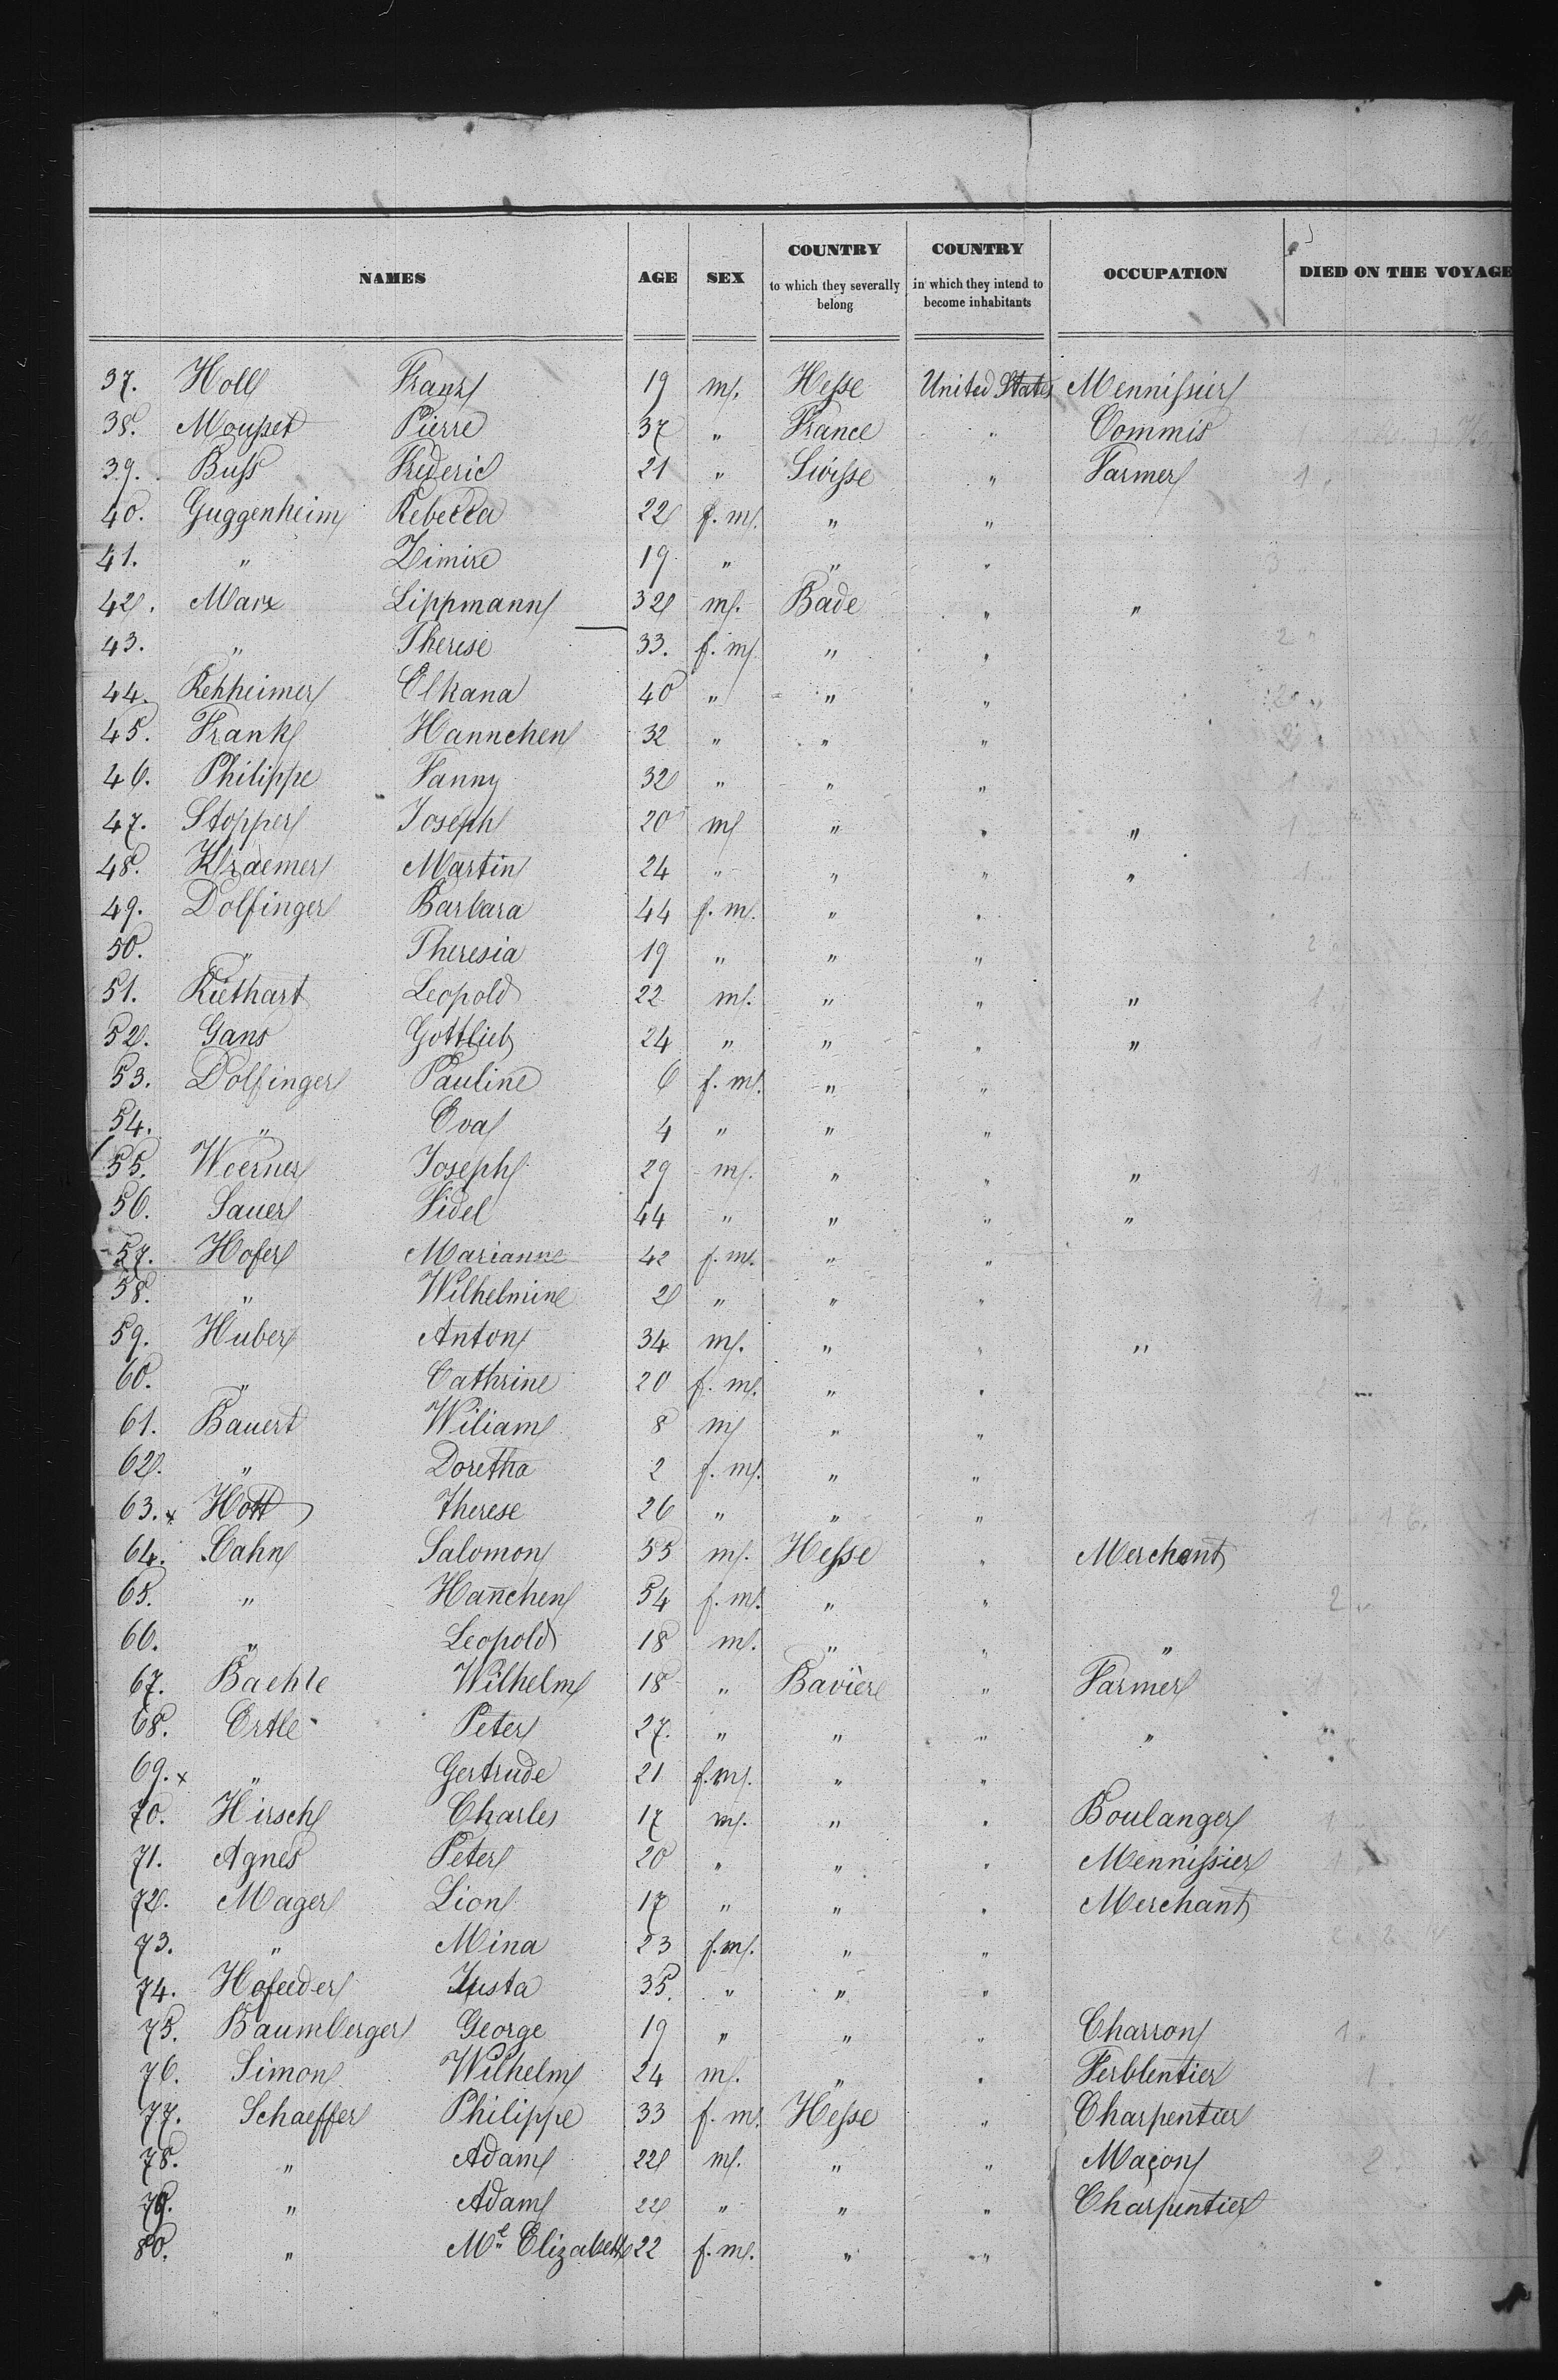 NAMES AGE SEX COUNTRY to which they severally belong COUNTRY in which they intend to become inhabitants OCCUPATION DIED ON THE VOYAGE
37. Holl Franz 19 m. Hesse United States Mennissier
38. Mousset Pierre 37 " France " Commis
39. Buss Frederic 21 " Swisse " Farmer
40. Guggenheim Rebecca 22 f. m. " "
41. " Zimire 19 " " "
42. Marx Lippmann 32 m. Bade " "
43. " Therese 33. f. m. " "
44. Rehheimer Elkana 40 " " "
45. Frank Hannchen 32 " " "
46. Philippe Fanny 32 " " "
47. Stopper Joseph 20 m " " "
48. Kraemer Martin 24 " " " "
49. Dolfinger Barbara 44 f. m. " "
50. " Theresia 19 " " "
51. Riethart Leopold 22 m. " " "
52. Gans Gottlieb 24 " " " "
53. Dolfinger Pauline 6 f. m. " "
54. " Eva 4 " " "
55. Woerner Joseph 29 m. " " "
56. Sauer Fidel 44 " " " "
57. Hofer Marianne 42 f. m. " "
58. " Wilhelmine 2 " " "
59. Huber Anton 34 m. " " "
60. " Cathrine 20 f. m. " "
61. Bauert Wiliam 8 m " "
62. " Doretha 2 f. m. " "
63. x Hott Therese 26 " " "
64. Cahn Salomon 55 m. Hesse " Merchant
65. " Han̄chen 54 f. m. " "
66. " Leopold 18 m. " " "
67. Baehle Wilhelm 18 " Bavière " Farmer
68. Ertle Peter 27. " " " "
69. x " Gertrude 21 f. m. " "
70. Hirsch Charles 17 m. " " Boulanger
71. Agnes Peter 20 " " " Mennissier
72. Mager Lion 17 " " " Merchant
73. " Mina 23 f. m. " "
74. Hofeeder Justa 35. " " "
75. Baumberger George 19 " " " Charron
76. Simon Wilhelm 24 m. " " Ferblentier
77. Schaeffer Philippe 33 f. m. Hesse " Charpentier
78. " Adam 22 m. " " Maçon
79. " Adam 22 " " " Charpentier
80. " Mle Elizabeth 22 f. m. " "